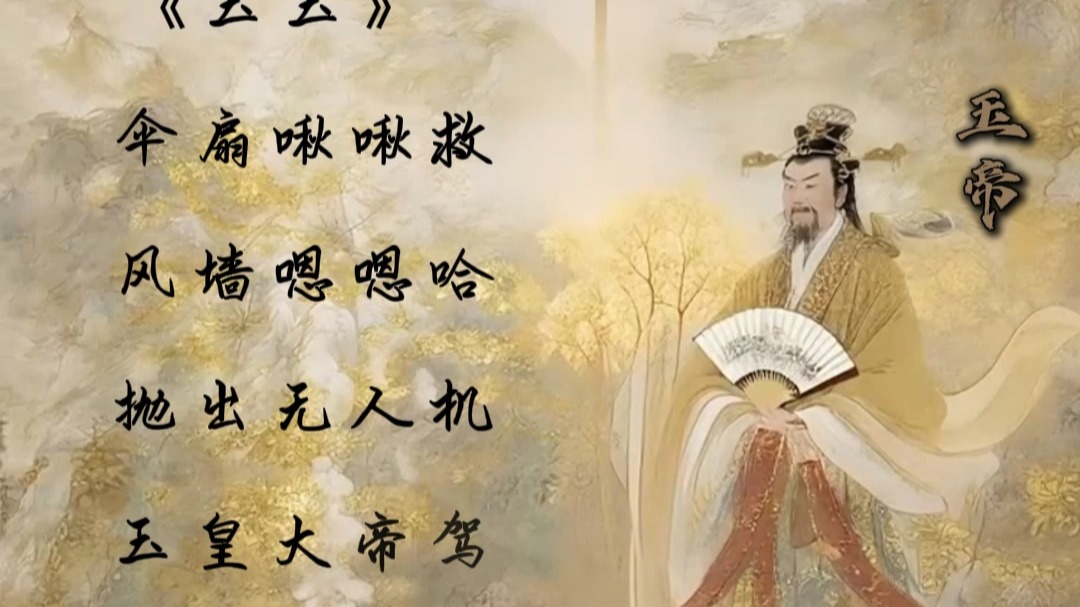 《玉玉》
伞扇啾啾救
风墙嗯嗯哈
抛出无人机
玉皇大帝驾
玉帝